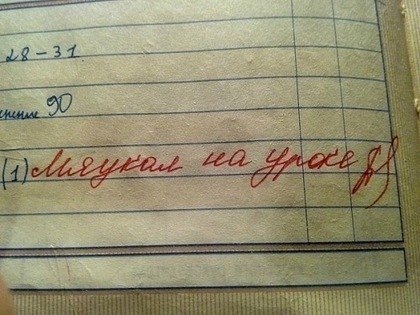 28-31.
90
(1) Мяукал на уроке